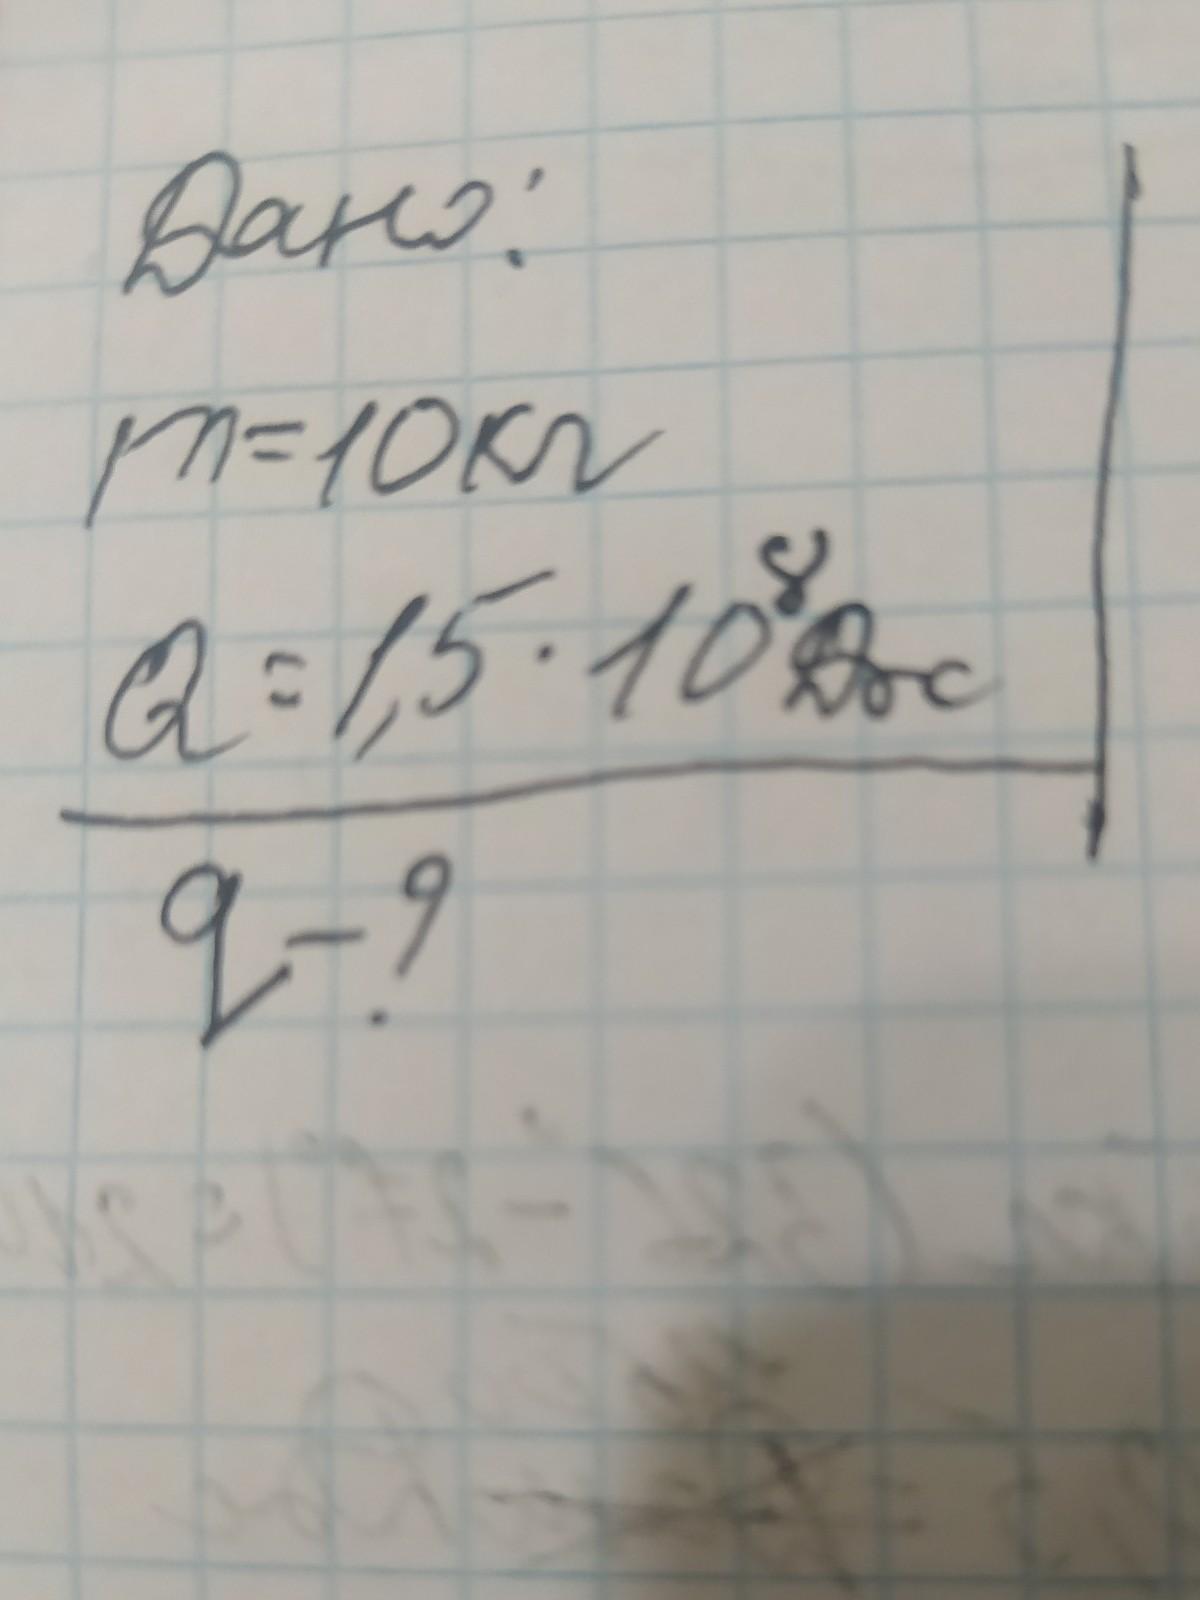 Дано:
m=10кг
Q=1,5·10⁸Дж
q-?